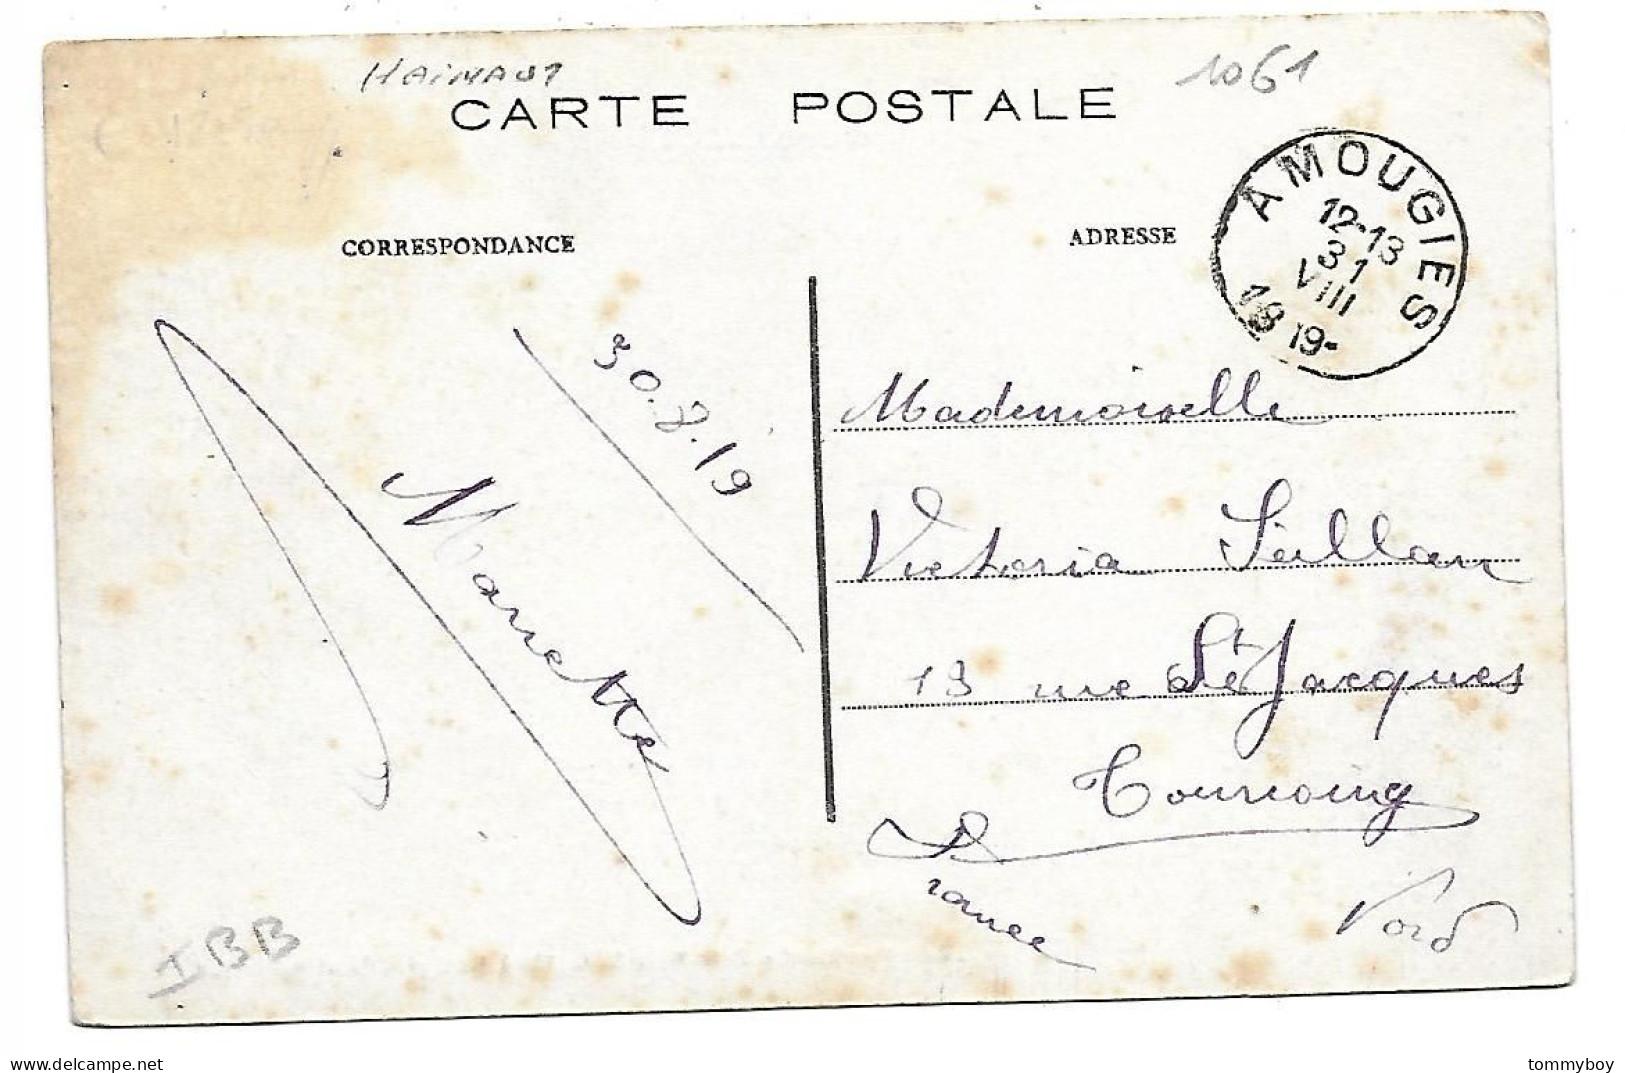 HAINAUT
1061
CARTE POSTALE
AMOUGIES
12-13
31
VIII
1919
CORRESPONDANCE
ADRESSE
30.8.19
Mariette
Mademoiselle
Victoria
13 rue St Jacques
Tourcoing
Nord
France
IBB
delcampe.net
tommyboy